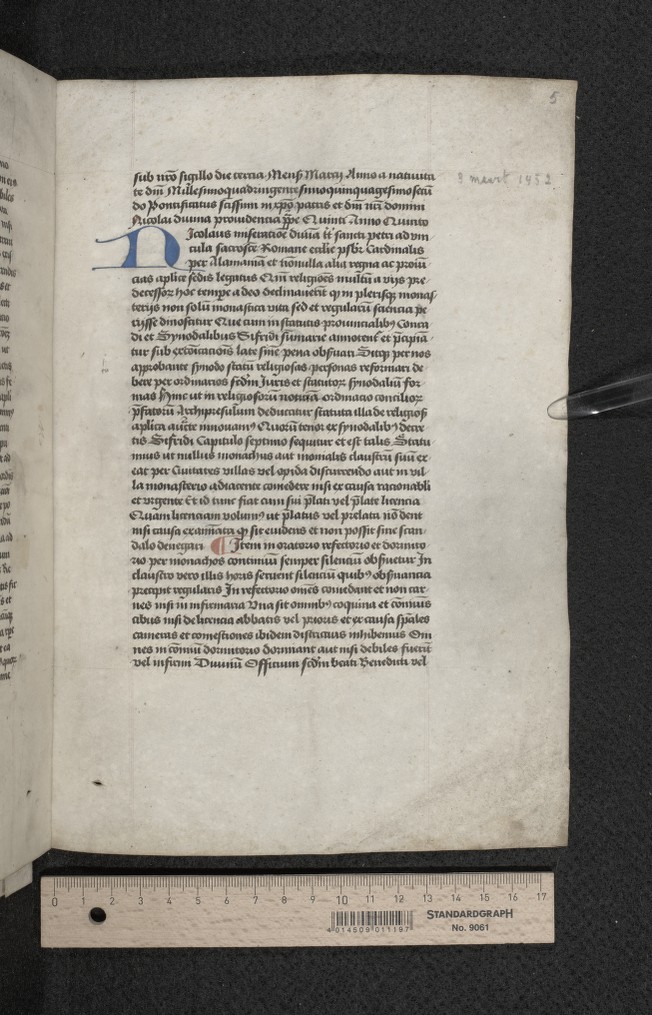 5
sub nr̄o sigillo die tercia Menṣ Marcij Anno a natiuita
3 meert 1452
te dm̄ Millesimoquadringentesimoquinquagesimosecū
do Pontificatus sc̄issimi in xp̄o patris et dm̄ nr̄i domini
Nicolai diuina prouidencia pp̄e Quinti Anno Quinto
Nicolaus miseratiōe diuīa tt̄ sancti petri ad vin
cula sacrosc̄e Romane eccl̄ie pſbr̄ Cardinalis
per Alamaniā et nōnulla alia regna ac prouī
cias aplice sedis legatus Cū religiōes multū a vijs pre
decessoꝝ hoc tempe a deo declinauerīt ꝙ in plerisqꝫ monas
terijs non solū monastica vita sed et regulariū sciencia pe
rijsse dinoscitur Que cum in statutis prouincialibꝫ Conra
di et Synodalibus Sifridi sūmarie
tur sub late sn̄ie pena obſuari per nos
approbante synodo statū religiosas personas reformari de
bere per ordinarios scd̄m Iuris et statutoꝝ synodaliū for
mas Hinc ut in religiosorū noticiā ordinatio concilioꝝ
p̄fatorū Archipresulum deducatur statuta illa de religioſ
aplica auc̄te innouamꝰ Quorū tenor ex synodalibꝫ decre
tis Sifridi Capitulo septimo sequitur et est talis Statu
imus ut nullus monachus aut monialis claustrū suū ex
eat per Ciuitates villas vel opida discurrendo aut in vil
la monasterio adiacente comedere nisi ex causa racionabili
et vrgente Et id tunc fiat cum sui p̄lati vel p̄late licencia
Quam licenciam volumꝰ ut p̄latus vel prelata nō dent
nisi causa examīata ꝙ sit euidens et non possit sine scan
dalo denegari ¶ Item in oratorio refectorio et dormito
rio per monachos continuū semper silenciū obſuetur In
claustro vero illis horis seruent silenciū quibꝫ obſuancia
precipit regularis In refectorio om̄es comedant et non car
nes nisi in infirmaria Vna sit omnibꝫ coquina et cōmuīs
cibus nisi de licencia abbatis vel prioris et ex causa sp̄ales
cameras et comestiones ibidem districtius inhibemus Om
nes in cōmūi dormitorio dormiant aut nisi debiles fuerīt
vel infirmi Diuinū Officium scd̄m beati Benedicti vel
0 1 2 3 4 5 6 7 8 9 10 11 12 13 14 15 16 17
STANDARDGRAPH
No. 9061
4 014509 011197